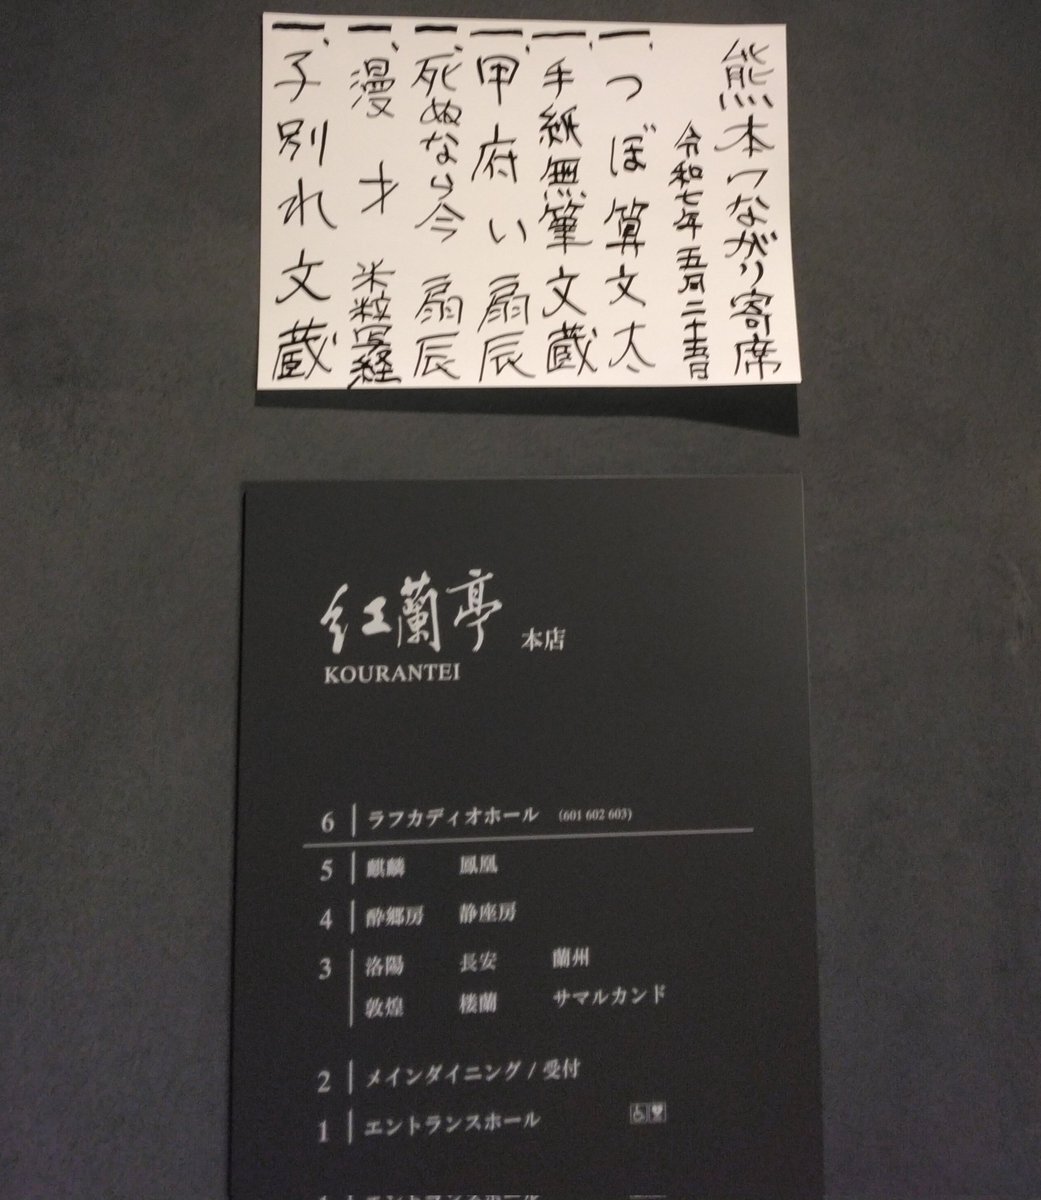 熊本つながり寄席
令和七年五月二十五日
一、つぼ算 文太
一、手紙無筆 文蔵
一、甲府い 扇辰
一、死ぬなら今 扇辰
一、漫才 米粒写経
一、子別れ 文蔵
紅蘭亭 本店
KOURANTEI
6 ラフカディオホール (601 602 603)
5 麒麟 鳳凰
4 酔郷房 静座房
3 洛陽 長安 蘭州
敦煌 楼蘭 サマルカンド
2 メインダイニング / 受付
1 エントランスホール